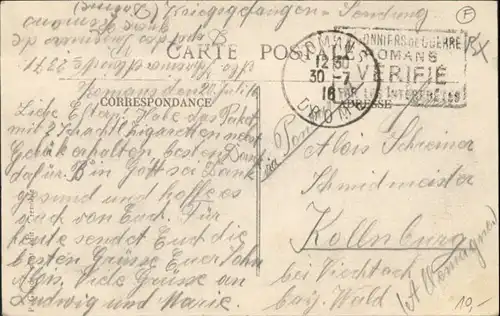 Kriegsgefangenen-Sendung
F
CARTE POSTALE
CORRESPONDANCE
ADRESSE
ROMANS
12 30
30 -7
16
DROME
PRISONNIERS DE GUERRE
ROMANS
VÉRIFIÉ
PAR LES INTERPRÈTES
Romans den 20 Juli 16
Liebe Eltern! Habe das Paket
mit 2 Schachtl Zigaretten nebst
Gebäk erhalten besten Dank
dafür. Bin Gott sei Dank
gesund und hoffe es
auch von Euch. Für
heute sendet Euch die
besten Grüsse Euer Sohn
Alois. Viele Grüsse an
Ludwig und Marie.
Alois Schreiner
Schmidmeister
Kollnburg
bei Viechtach
bay. Wald
(Allemagne)
10,-